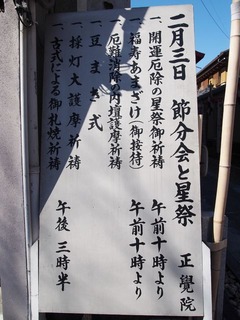 二月三日 節分会と星祭 正覺院
一、開運厄除の星祭御祈祷 午前十時より
一、福寿あまざけ(御接待) 午前十時より
一、厄難消除の内壇護摩祈祷
一、豆まき式
一、採灯大護摩祈祷 午後三時半
一、古式による御札焼祈祷